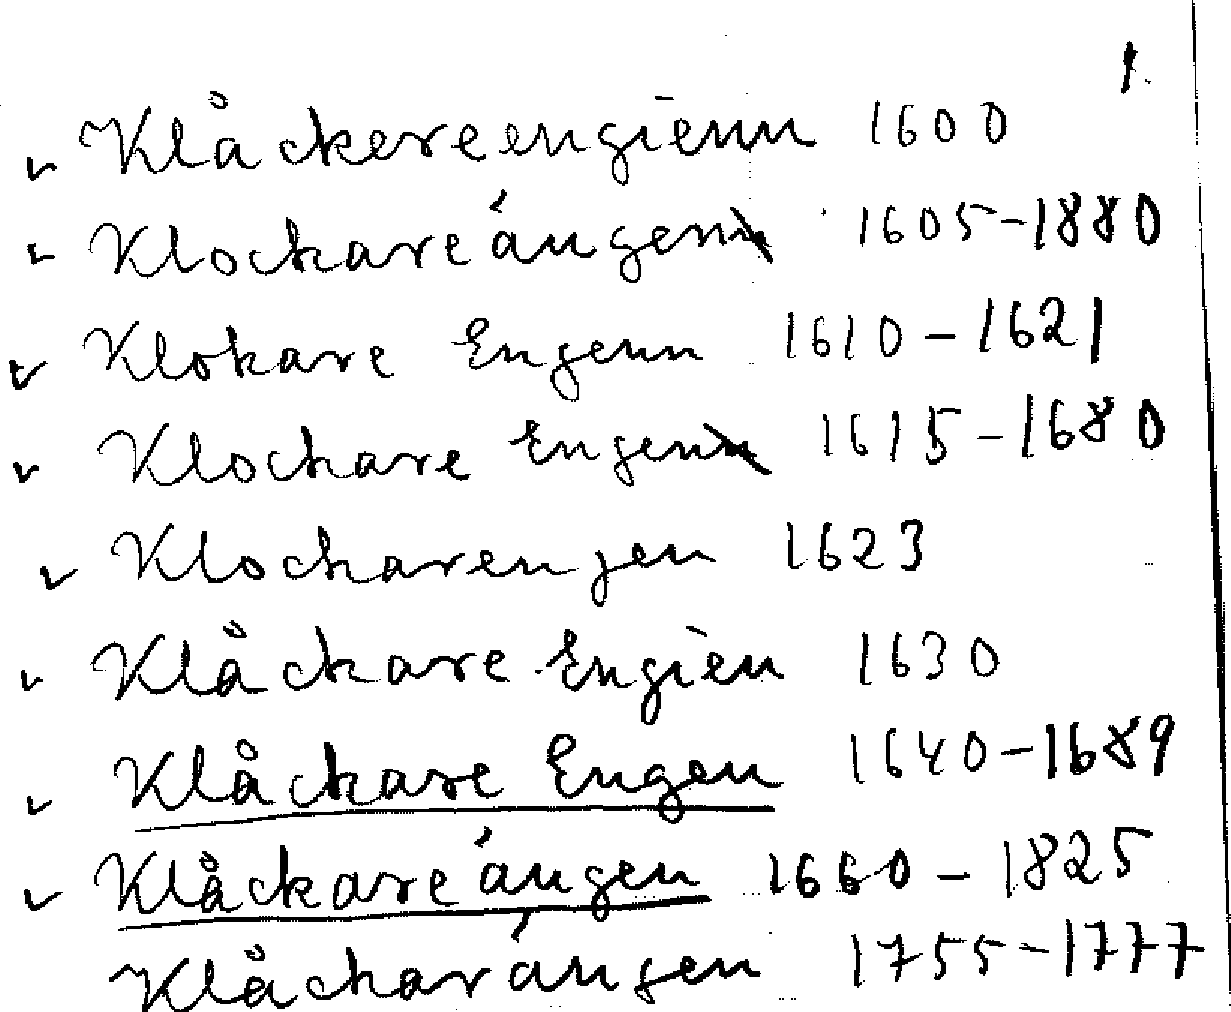 1.
Klåckereengienn 1600
Klockareängen 1605-1880
Klokare Engenn 1610-1621
Klockare Engen 1615-1680
Klockarengen 1623
Klåckare Engien 1630
Klåckare Engen 1640-1689
Klåckareängen 1660-1825
Klåckarängen 1755-1777